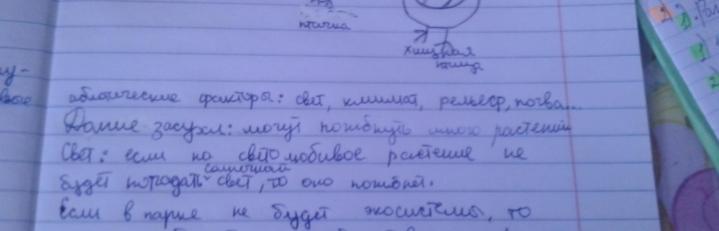 птичка
хищная
птица
абиотические факторы: свет, климат, рельеф, почва...
Долгие засухи: могут погибнуть много растений
Свет: если на светолюбивое растение не
солнечный
будет попадать свет, то оно погибнет.
Если в парке не будет экосистемы, то